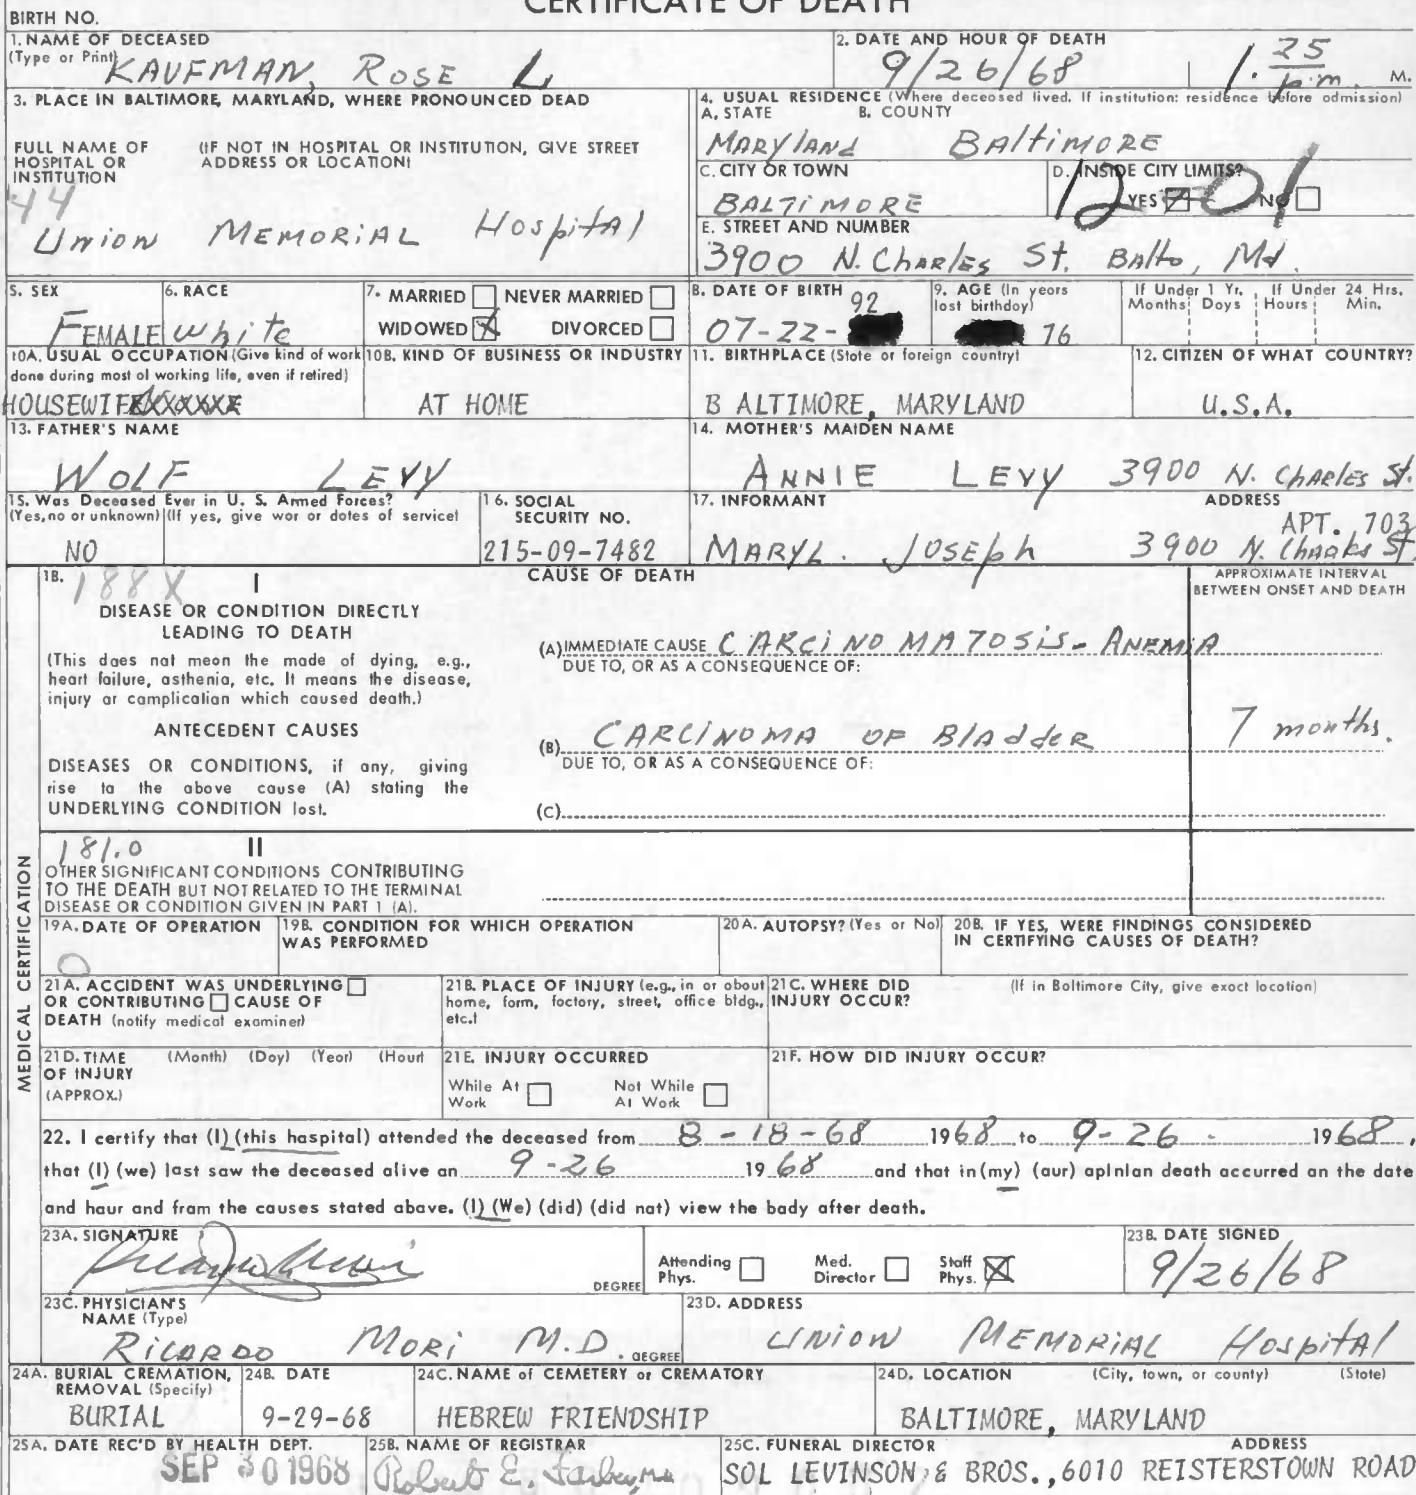 CERTIFICATE OF DEATH
BIRTH NO.
1. NAME OF DECEASED
(Type or Print)
KAUFMAN, ROSE L
2. DATE AND HOUR OF DEATH
9/26/68 1. 25 p.m. M.
3. PLACE IN BALTIMORE, MARYLAND, WHERE PRONOUNCED DEAD
FULL NAME OF HOSPITAL OR INSTITUTION
(IF NOT IN HOSPITAL OR INSTITUTION, GIVE STREET ADDRESS OR LOCATION)
44
Union MEMORIAL Hospital
4. USUAL RESIDENCE (Where deceased lived. If institution: residence before admission)
A. STATE B. COUNTY
MARYLAND BALTIMORE
C. CITY OR TOWN
BALTIMORE
D. INSIDE CITY LIMITS?
YES NO
12-01
E. STREET AND NUMBER
3900 N. CHARLES St. BALTO, Md.
5. SEX
FEMALE
6. RACE
white
7. MARRIED NEVER MARRIED
WIDOWED X DIVORCED
8. DATE OF BIRTH
92
07-22-
9. AGE (In years last birthday)
76
If Under 1 Yr. Months Days
If Under 24 Hrs. Hours Min.
10A. USUAL OCCUPATION (Give kind of work done during most of working life, even if retired)
HOUSEWIFE
10B. KIND OF BUSINESS OR INDUSTRY
AT HOME
11. BIRTHPLACE (State or foreign country)
B ALTIMORE, MARYLAND
12. CITIZEN OF WHAT COUNTRY?
U.S.A.
13. FATHER'S NAME
WOLF LEVY
14. MOTHER'S MAIDEN NAME
ANNIE LEVY 3900 N. CHARLES St.
15. Was Deceased Ever in U. S. Armed Forces?
(Yes, no or unknown) (If yes, give war or dates of service)
NO
16. SOCIAL SECURITY NO.
215-09-7482
17. INFORMANT ADDRESS
MARY L. JOSEPH
APT. 703
3900 N. Charles St.
18.
188X
I
CAUSE OF DEATH
APPROXIMATE INTERVAL BETWEEN ONSET AND DEATH
DISEASE OR CONDITION DIRECTLY LEADING TO DEATH
(This does not mean the mode of dying, e.g., heart failure, asthenia, etc. It means the disease, injury or complication which caused death.)
ANTECEDENT CAUSES
DISEASES OR CONDITIONS, if any, giving rise to the above cause (A) stating the UNDERLYING CONDITION last.
(A) IMMEDIATE CAUSE CARCINOMATOSIS - ANEMIA
DUE TO, OR AS A CONSEQUENCE OF:
(B) CARCINOMA OF BLADDER 7 months.
DUE TO, OR AS A CONSEQUENCE OF:
(C)
MEDICAL CERTIFICATION
181.0
II
OTHER SIGNIFICANT CONDITIONS CONTRIBUTING TO THE DEATH BUT NOT RELATED TO THE TERMINAL DISEASE OR CONDITION GIVEN IN PART 1 (A).
19A. DATE OF OPERATION
0
19B. CONDITION FOR WHICH OPERATION WAS PERFORMED
20A. AUTOPSY? (Yes or No)
20B. IF YES, WERE FINDINGS CONSIDERED IN CERTIFYING CAUSES OF DEATH?
21A. ACCIDENT WAS UNDERLYING OR CONTRIBUTING CAUSE OF DEATH (notify medical examiner)
21B. PLACE OF INJURY (e.g., in or about home, farm, factory, street, office bldg., etc.)
21C. WHERE DID INJURY OCCUR?
(If in Baltimore City, give exact location)
21D. TIME OF INJURY (APPROX.) (Month) (Day) (Year) (Hour)
21E. INJURY OCCURRED
While At Work Not While At Work
21F. HOW DID INJURY OCCUR?
22. I certify that (I) (this hospital) attended the deceased from 8-18-68 1968 to 9-26- 1968,
that (I) (we) last saw the deceased alive on 9-26 1968 and that in (my) (our) opinion death occurred on the date
and hour and from the causes stated above. (I) (We) (did) (did not) view the body after death.
23A. SIGNATURE
DEGREE
Attending Phys. Med. Director Staff Phys. X
23B. DATE SIGNED
9/26/68
23C. PHYSICIAN'S NAME (Type)
RICARDO MORI M.D. DEGREE
23D. ADDRESS
UNION MEMORIAL Hospital
24A. BURIAL CREMATION, REMOVAL (Specify)
BURIAL
24B. DATE
9-29-68
24C. NAME of CEMETERY or CREMATORY
HEBREW FRIENDSHIP
24D. LOCATION (City, town, or county) (State)
BALTIMORE, MARYLAND
25A. DATE REC'D BY HEALTH DEPT.
SEP 30 1968
25B. NAME OF REGISTRAR
Robert E. Farber, MD
25C. FUNERAL DIRECTOR ADDRESS
SOL LEVINSON & BROS., 6010 REISTERSTOWN ROAD